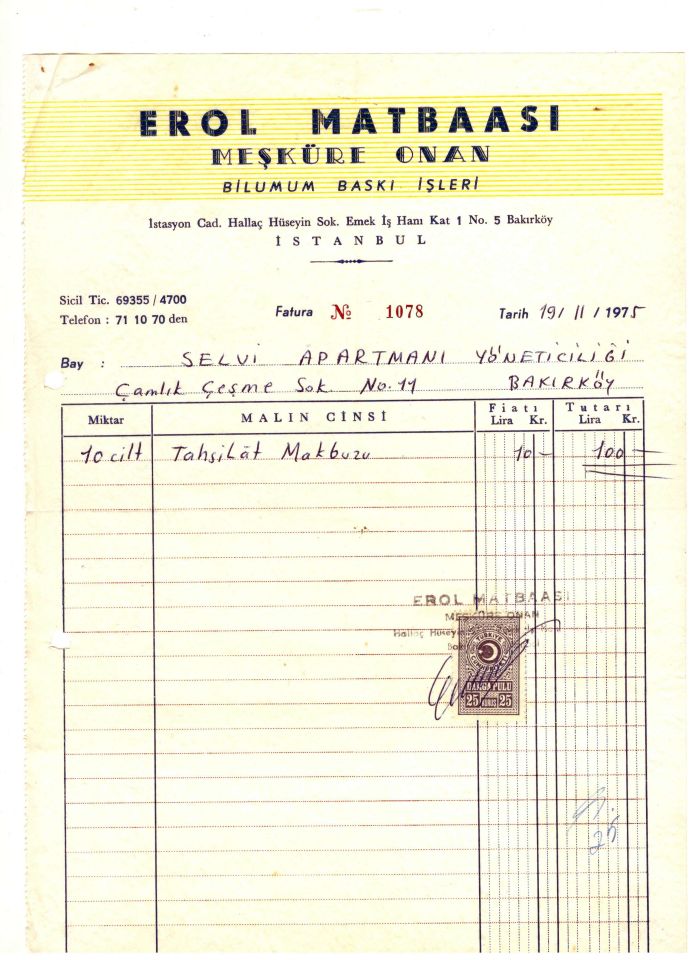 EROL MATBAASI
MEŞKÛRE ONAN
BİLUMUM BASKI İŞLERİ
İstasyon Cad. Hallaç Hüseyin Sok. Emek İş Hanı Kat 1 No. 5 Bakırköy
İSTANBUL
Sicil Tic. 69355 / 4700
Telefon : 71 10 70 den
Fatura № 1078
Tarih 19/ 11 / 1975
Bay : SELVİ APARTMANI YÖNETİCİLİĞİ
Çamlık Çeşme Sok No. 11 BAKIRKÖY
Miktar MALIN CİNSİ Fiatı Lira Kr. Tutarı Lira Kr.
10 cilt Tahsilât Makbuzu 10 - 100 -
EROL MATBAASI
MEŞKÛRE ONAN
Hallaç Hüseyin
TÜRKİYE
DAMGA PULU
25 KURUŞ 25
25